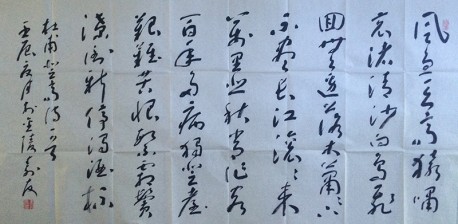 風急天高猿嘯
哀渚清沙白鳥飛
回無邊落木蕭蕭下
不盡長江滾滾來
萬里悲秋常作客
百年多病獨登臺
艱難苦恨繁霜鬢
潦倒新停濁酒杯
杜甫登高詩一首
壬辰夏月於金陵